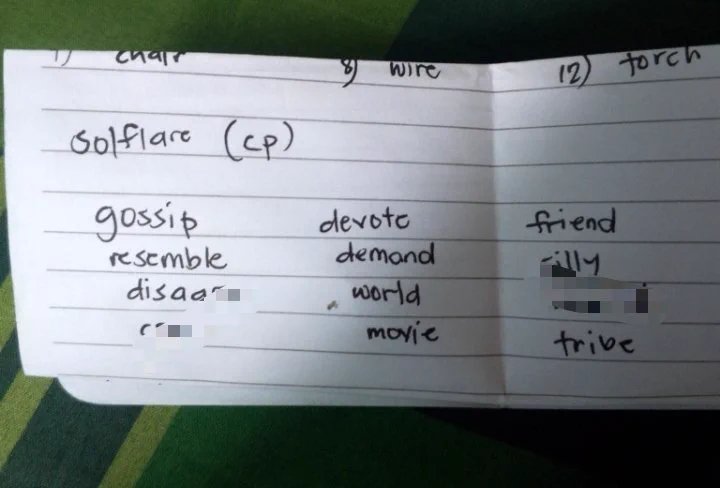 chair 8) wire 12) torch
solflare (cp)
gossip devote friend
resemble demand
world
movie tribe